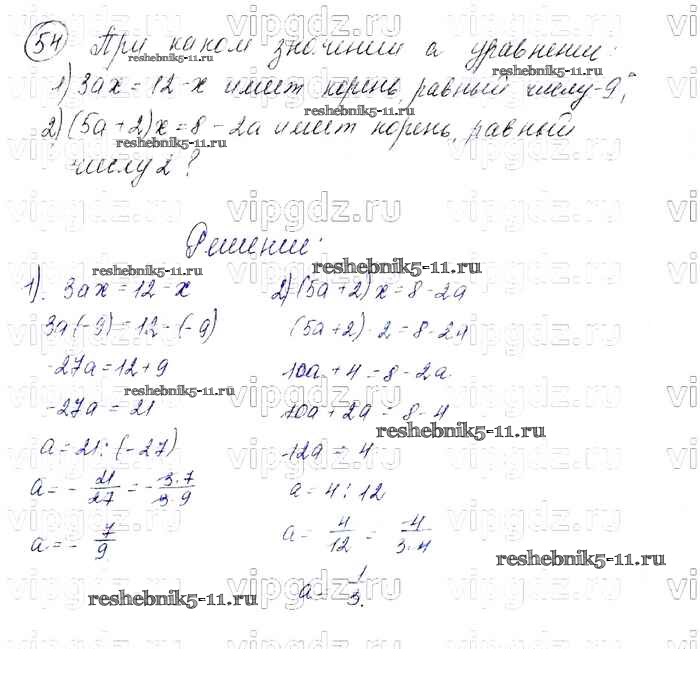 54 При каком значении а уравнение:
1) 3ах = 12 - х имеет корень, равный числу -9;
2) (5а + 2)х = 8 - 2а имеет корень, равный
числу 2?
Решение:
1). 3ах = 12 - х
3а(-9) = 12 - (-9)
-27а = 12 + 9
-27а = 21
а = 21 : (-27)
а = - 21/27 = - 3·7/3·9
а = - 7/9
2) (5а + 2)х = 8 - 2а
(5а + 2) · 2 = 8 - 2а
10а + 4 = 8 - 2а
10а + 2а = 8 - 4
12а = 4
а = 4 : 12
а = 4/12 = 4/3·4
а = 1/3.
vipgdz.ru
reshebnik5-11.ru